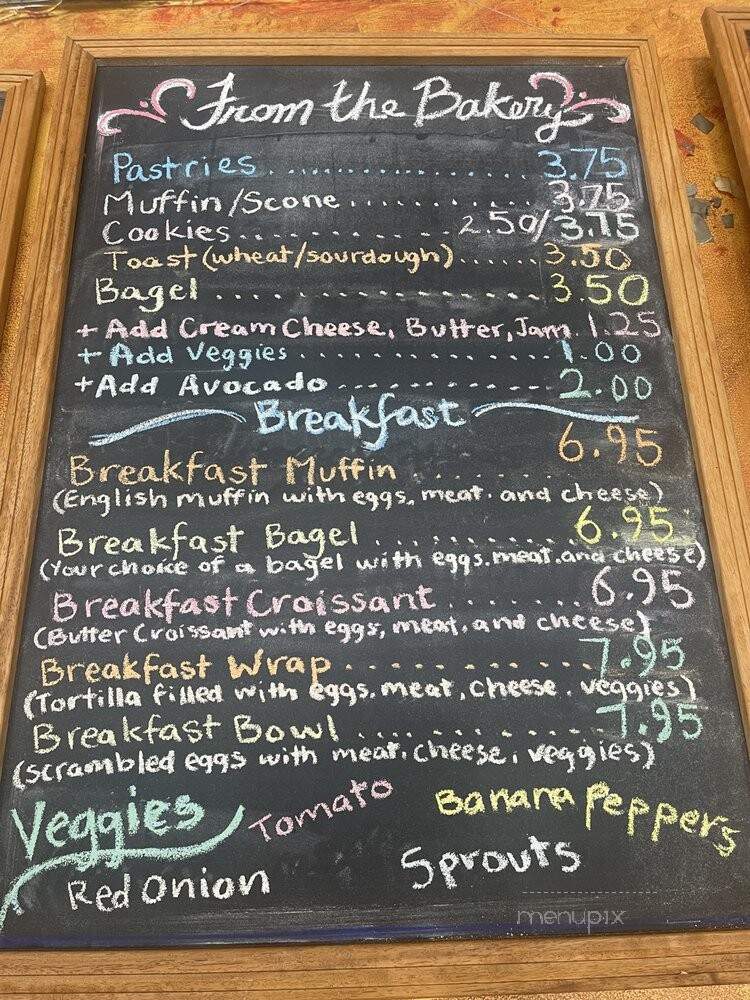 From the Bakery
Pastries................. 3.75
Muffin/Scone............ 3.75
Cookies............ 2.50/3.75
Toast (wheat/sourdough)...... 3.50
Bagel.............. 3.50
+ Add Cream Cheese, Butter, Jam. 1.25
+ Add Veggies............ 1.00
+Add Avocado............ 2.00
Breakfast
Breakfast Muffin....... 6.95
(English muffin with eggs, meat, and cheese)
Breakfast Bagel......... 6.95
(Your choice of a bagel with eggs, meat, and cheese)
Breakfast Croissant....... 6.95
(Butter Croissant with eggs, meat, and cheese)
Breakfast Wrap......... 7.95
(Tortilla filled with eggs, meat, cheese, veggies)
Breakfast Bowl.......... 7.95
(scrambled eggs with meat, cheese, veggies)
Veggies Tomato Banana Peppers
Red Onion Sprouts
menupix